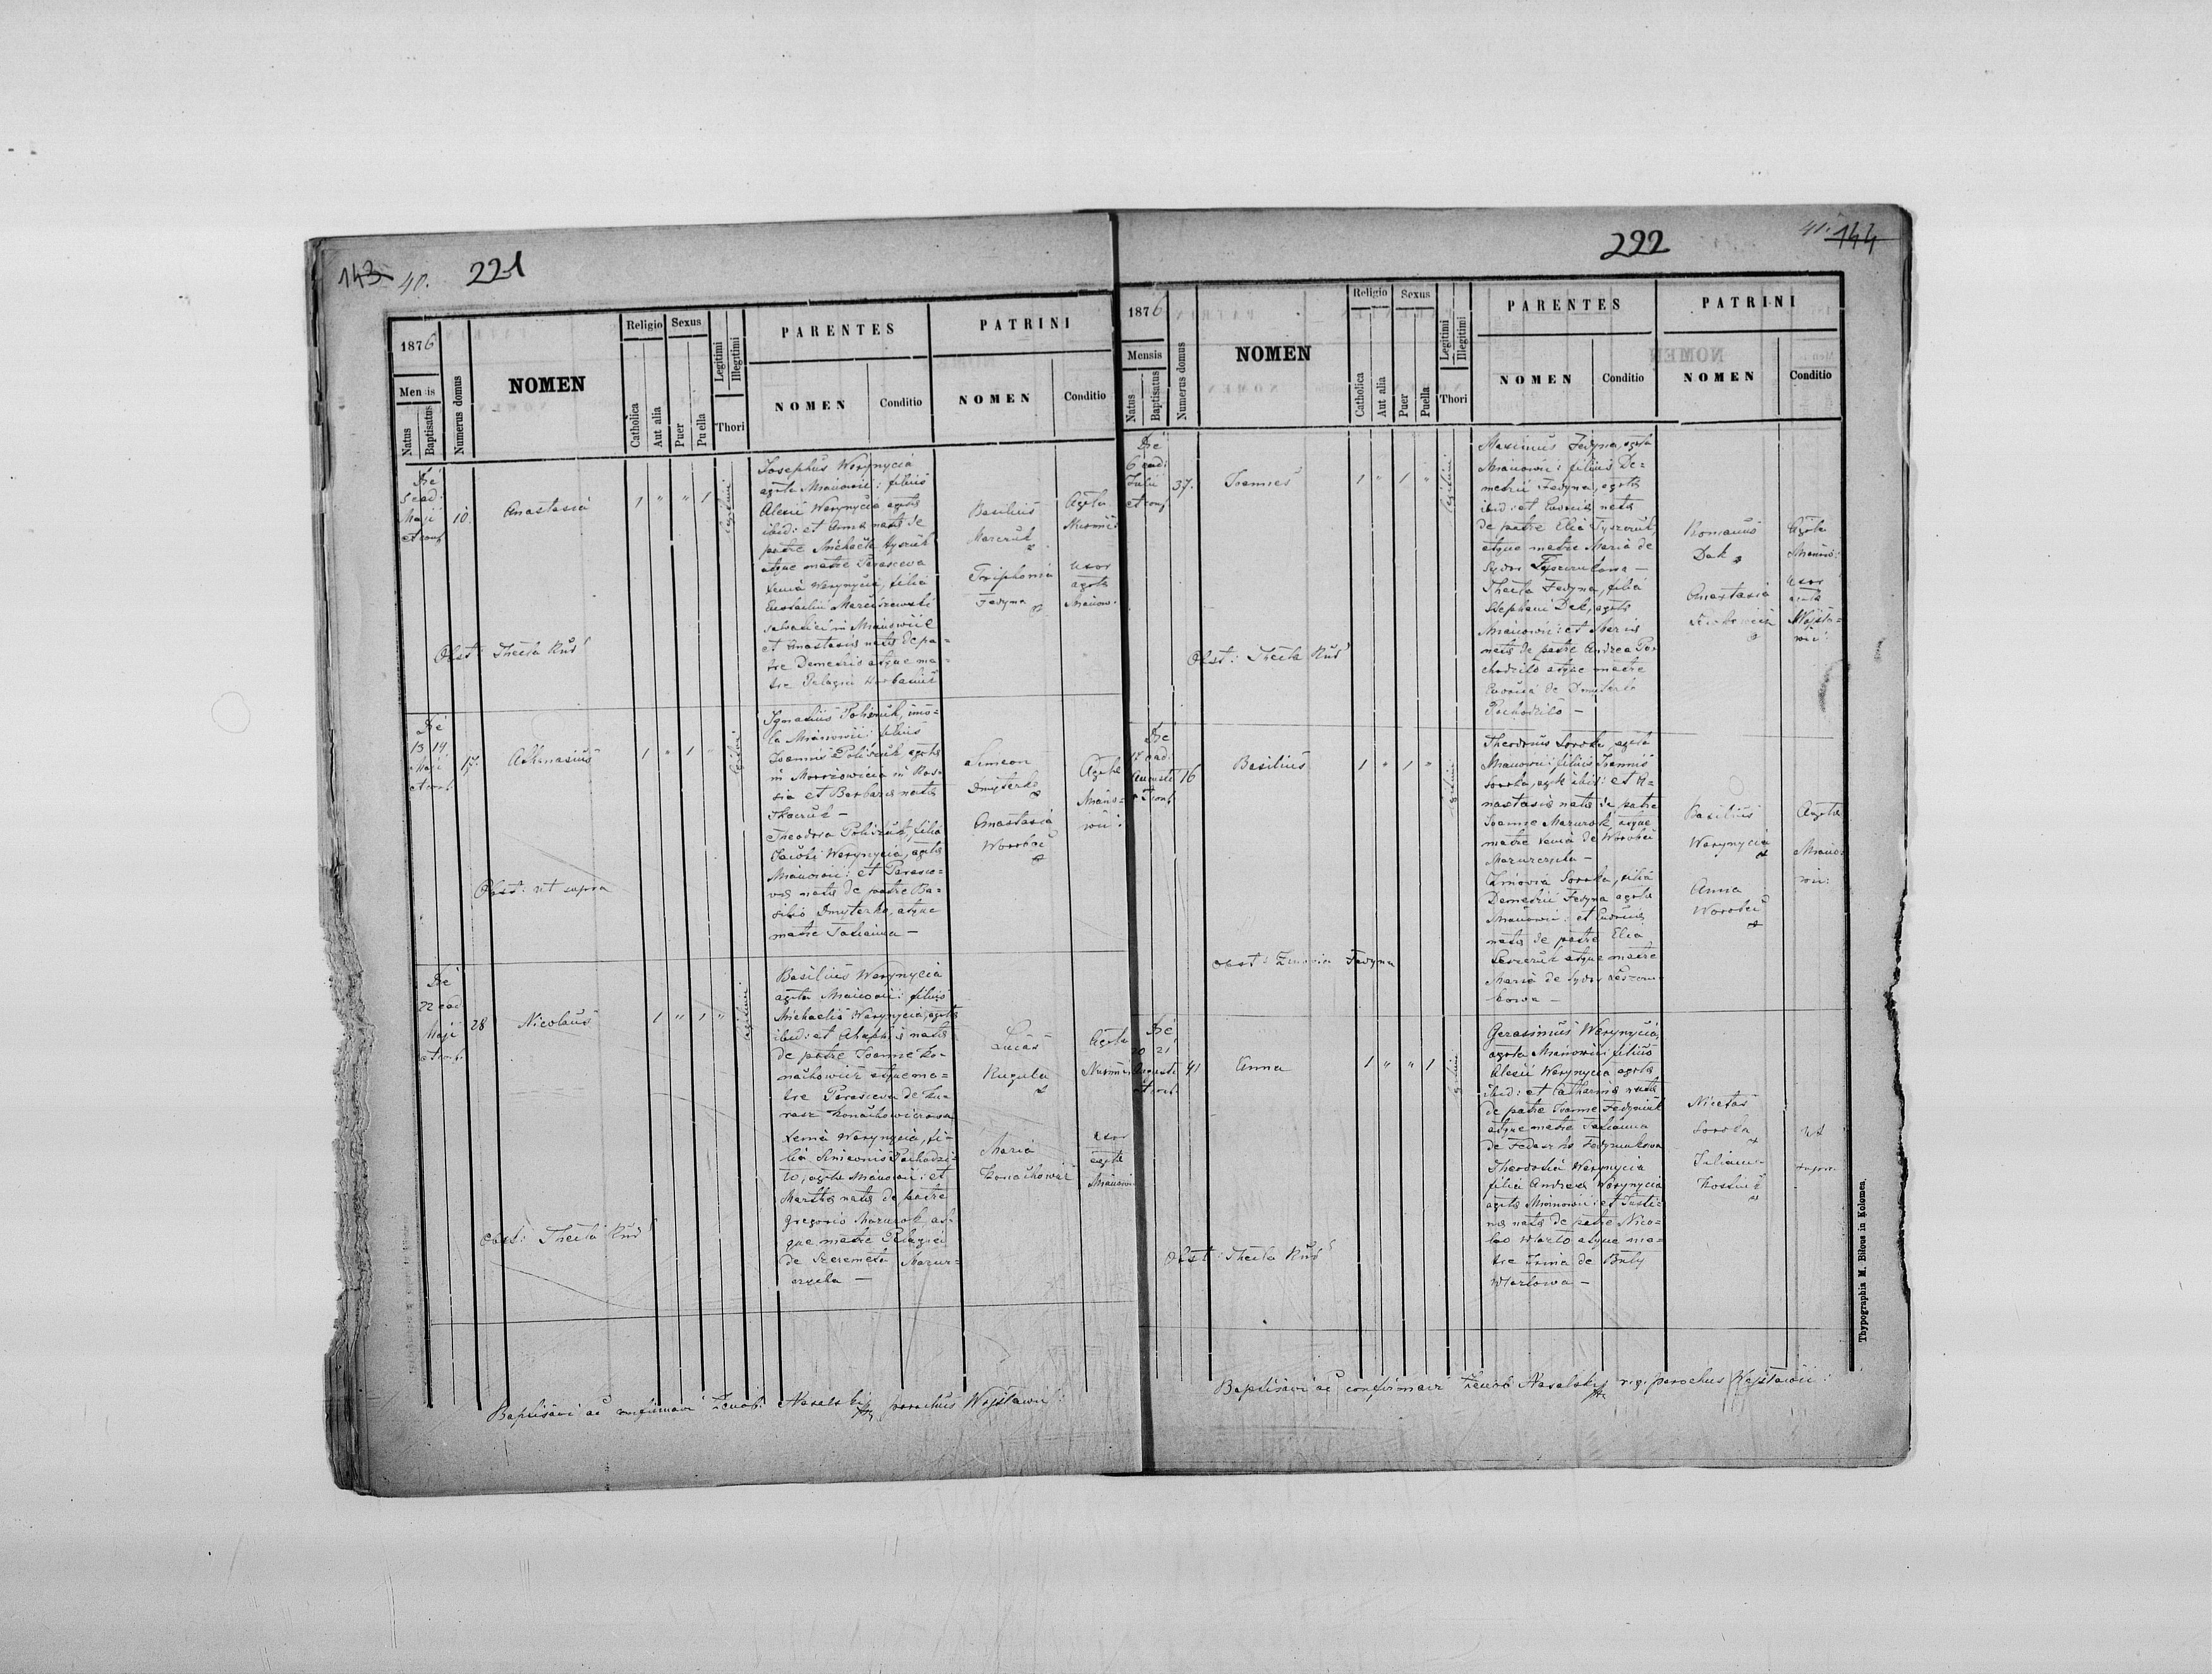 143 40. 221
1876
Mensis
Natus
Baptisatus
Numerus domus
NOMEN
Religio
Catholica
Aut alia
Sexus
Puer
Puella
Legitimi
Illegitimi
Thori
PARENTES
NOMEN
Conditio
PATRINI
NOMEN
Conditio
Die
5 ead:
Maji
et conf
10
Anastasia
1 " " 1
Josephus Werynycia
agrta Mianowic: filius
Alexii Werynycia agrtis
ibid: et Anna nata de
patre Michaele Hyszuk
atque matre Parasceva
Xenia Werynycia, filia
Eustachii
et Anastasia nata de pa=
tre Demetrio atque ma=
tre Pelagia
Basilius
Marczuk
Agrta
Triphonia
Fedyna
uxor
agrta
Mianow:
Obst: Thecla Kus
Die
13 14
Maji
et conf
17.
Athanasius
1 " 1 "
Ignatius Poliszuk, inco=
la Mianowic: filius
Joannis Poliszuk agrta
in Morozowicia in Ros=
sia et Barbara nata
Tkaczuk —
Theodora Poliszuk, filia
Jacobi Werynycia, agrta
Mianowic: et Parasce=
va nata de patre Ba=
silio Dmyterko, atque
matre Tatianna —
Simeon
Dmyterko
Agrta
Miano=
wic:
Anastasia
Worobec
Obst: ut supra
Die
22 ead
Maji
et conf:
28
Nicolaus
1 " 1 "
Basilius Werynycia
agrta Mianowic: filius
Michaelis Werynycia, agrtis
ibid: et Ahaphia nata
de patre Joanne Ko=
nachowicz atque ma=
tre Parasceva de Ku=
rasz Konachowiczowa
Xenia Werynycia, fi=
lia Simeonis Pochodzi=
lo, agrta Mianowic: et
Martha nata de patre
Gregorio Mazurok, at=
que matre Pelagia
de Szeremeta Mazur=
czycha —
Lucas
Kuzula
Agrta
Maria
Konachowicz
uxor
agrta
Mianowic
Obst: Thecla Kus
Baptisavi ac confirmavi Zenob: Nasalskij parochus Wojslawic:
222 41. 144
1876
Mensis
Natus
Baptisatus
Numerus domus
NOMEN
Religio
Catholica
Aut alia
Sexus
Puer
Puella
Legitimi
Illegitimi
Thori
PARENTES
NOMEN
Conditio
PATRINI
NOMEN
Conditio
Die
6 ead:
Julii
et conf
37.
Joannes
1 " 1 "
Maximus Fedyna, agrta
Mianowic: filius De=
metrii Fedyna, agrtis
ibid: et Eudocia nata
de patre Elia Tyszczuk,
atque matre Maria de
Sydor Tyszczukowa —
Thecla Fedyna, filia
Stephani Dak, agrta
Mianowic: et Maria
nata de patre Andrea Po=
chodzilo atque matre
Eudocia de Dmyterko
Pochodzilo —
Romanus
Dak
Agrta
Mianow:
Anastasia
uxor
agrta
Wojsla=
wic:
Obst: Thecla Kus
Die
17 ead:
Augusti
et conf
16
Basilius
1 " 1 "
Theodorus Soroka, agrta
Mianowic: filius Joannis
Soroka, agrt: ibid: et A=
nastasia nata de patre
Joanne Mazurok, atque
matre Xenia de Worobec
Mazurczycha —
Zinovia Soroka, filia
Demetrii Fedyna agrta
Mianowic: et Eudocia
nata de patre Elia
atque matre
Maria de Sydor
kowa —
Basilius
Werynycia
Agrta
Miano=
wic:
Anna
Worobec
Obst: Zinovia Fedyna
Die
20 21
Augusti
et conf:
41
Anna
1 " " 1
Gerasimus Werynycia,
agrta Mianowic: filius
Alexii Werynycia agrtis
ibid: et Catharina nata
de patre Joanne Fedyniuk
atque matre Tatianna
de Fedaszko Fedyniukowa
Theodosia Werynycia
filia Andrea Werynycia
agrta Mianowic: et Justi=
na nata de patre Nico=
lao Wlazlo atque ma=
tre Irina de Buly
Wlazlowa —
Nicetas
Soroka
ut
supra
Juliana
Kostiuk
Obst: Thecla Kus
Baptisavi ac confirmavi Zenob Nasalskij r.g. parochus Wojslawic:
Thypographia M. Bilous in Kolomea.